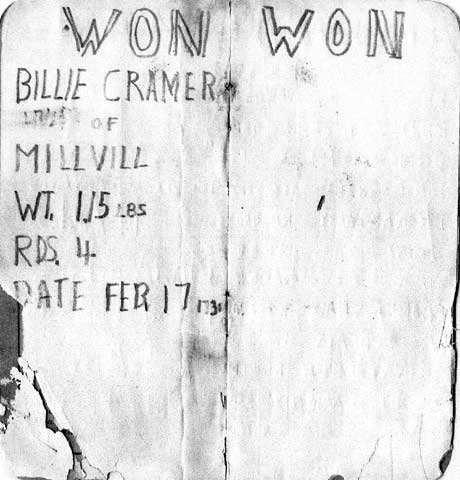 WON WON
BILLIE CRAMER
OF
MILLVILL
WT. 115 LBS
RDS. 4
DATE FEB 17